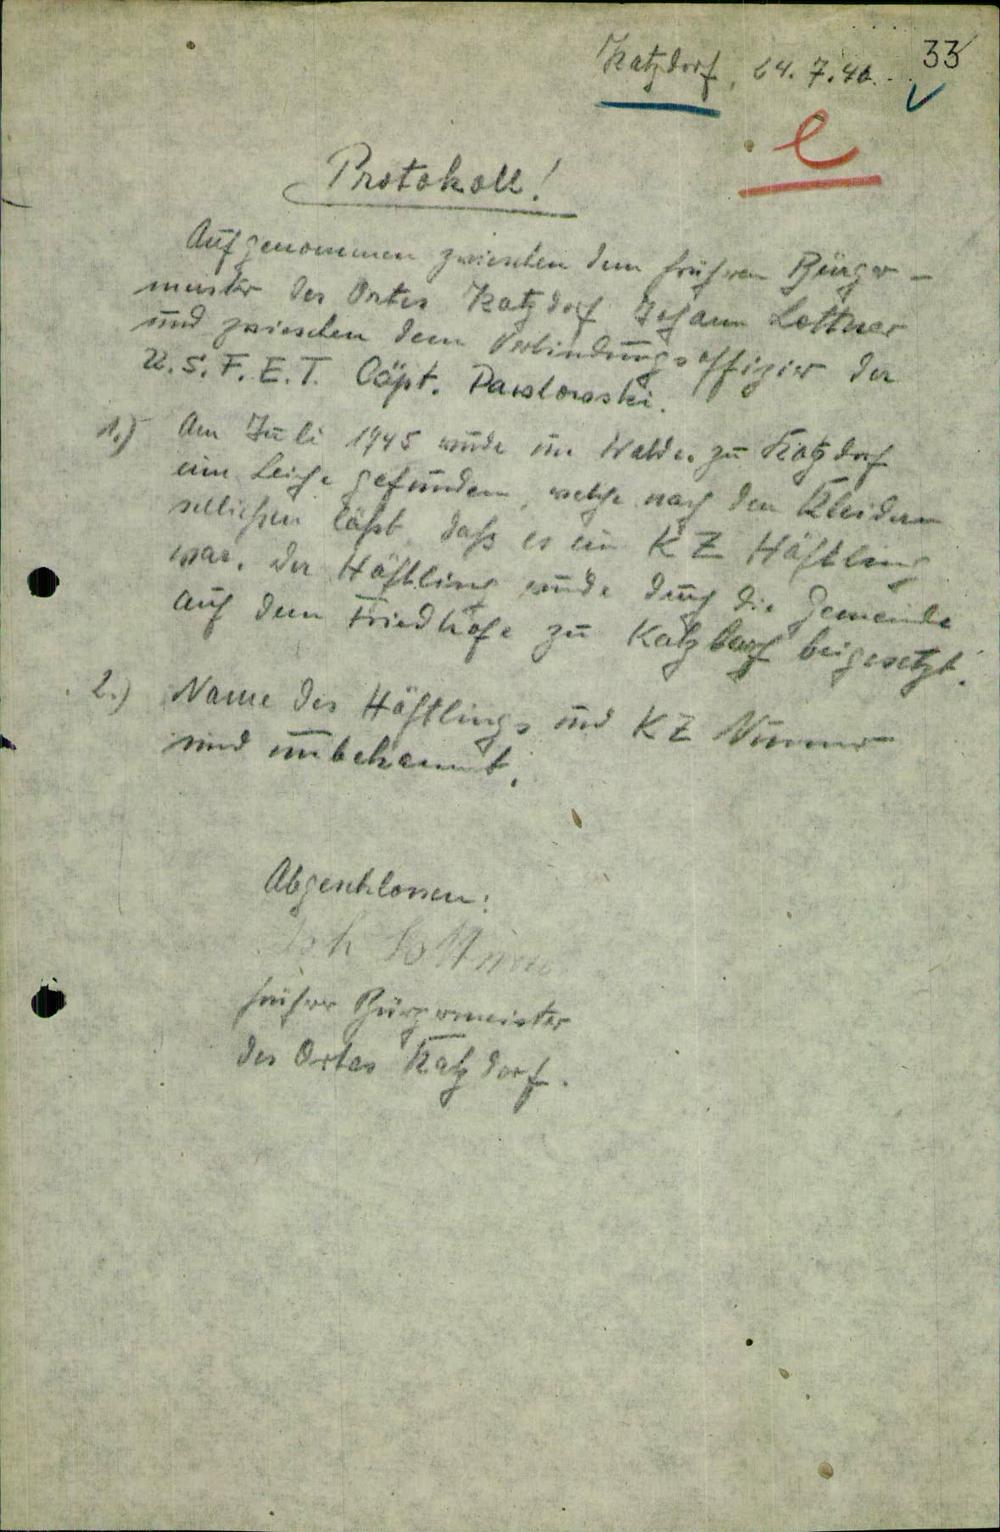 33
Katzdorf, 24.7.46.
e
Protokoll!
Aufgenommen zwischen dem früheren Bürger-
meister des Ortes Katzdorf Johann Lottner
und zwischen dem Verbindungsoffizier der
U.S.F.E.T. Cäpt. Pawlowski.
1.) Am Juli 1945 wurde im Walde zu Katzdorf
eine Leiche gefunden, welche nach den Kleidern
schliessen läßt, daß es ein KZ Häftling
war. Der Häftling wurde durch die Gemeinde
auf dem Friedhofe zu Katzdorf beigesetzt.
2.) Name des Häftlings und KZ Nummer
sind unbekannt.
Abgeschlossen:
Joh Lottner
früherer Bürgermeister
des Ortes Katzdorf.